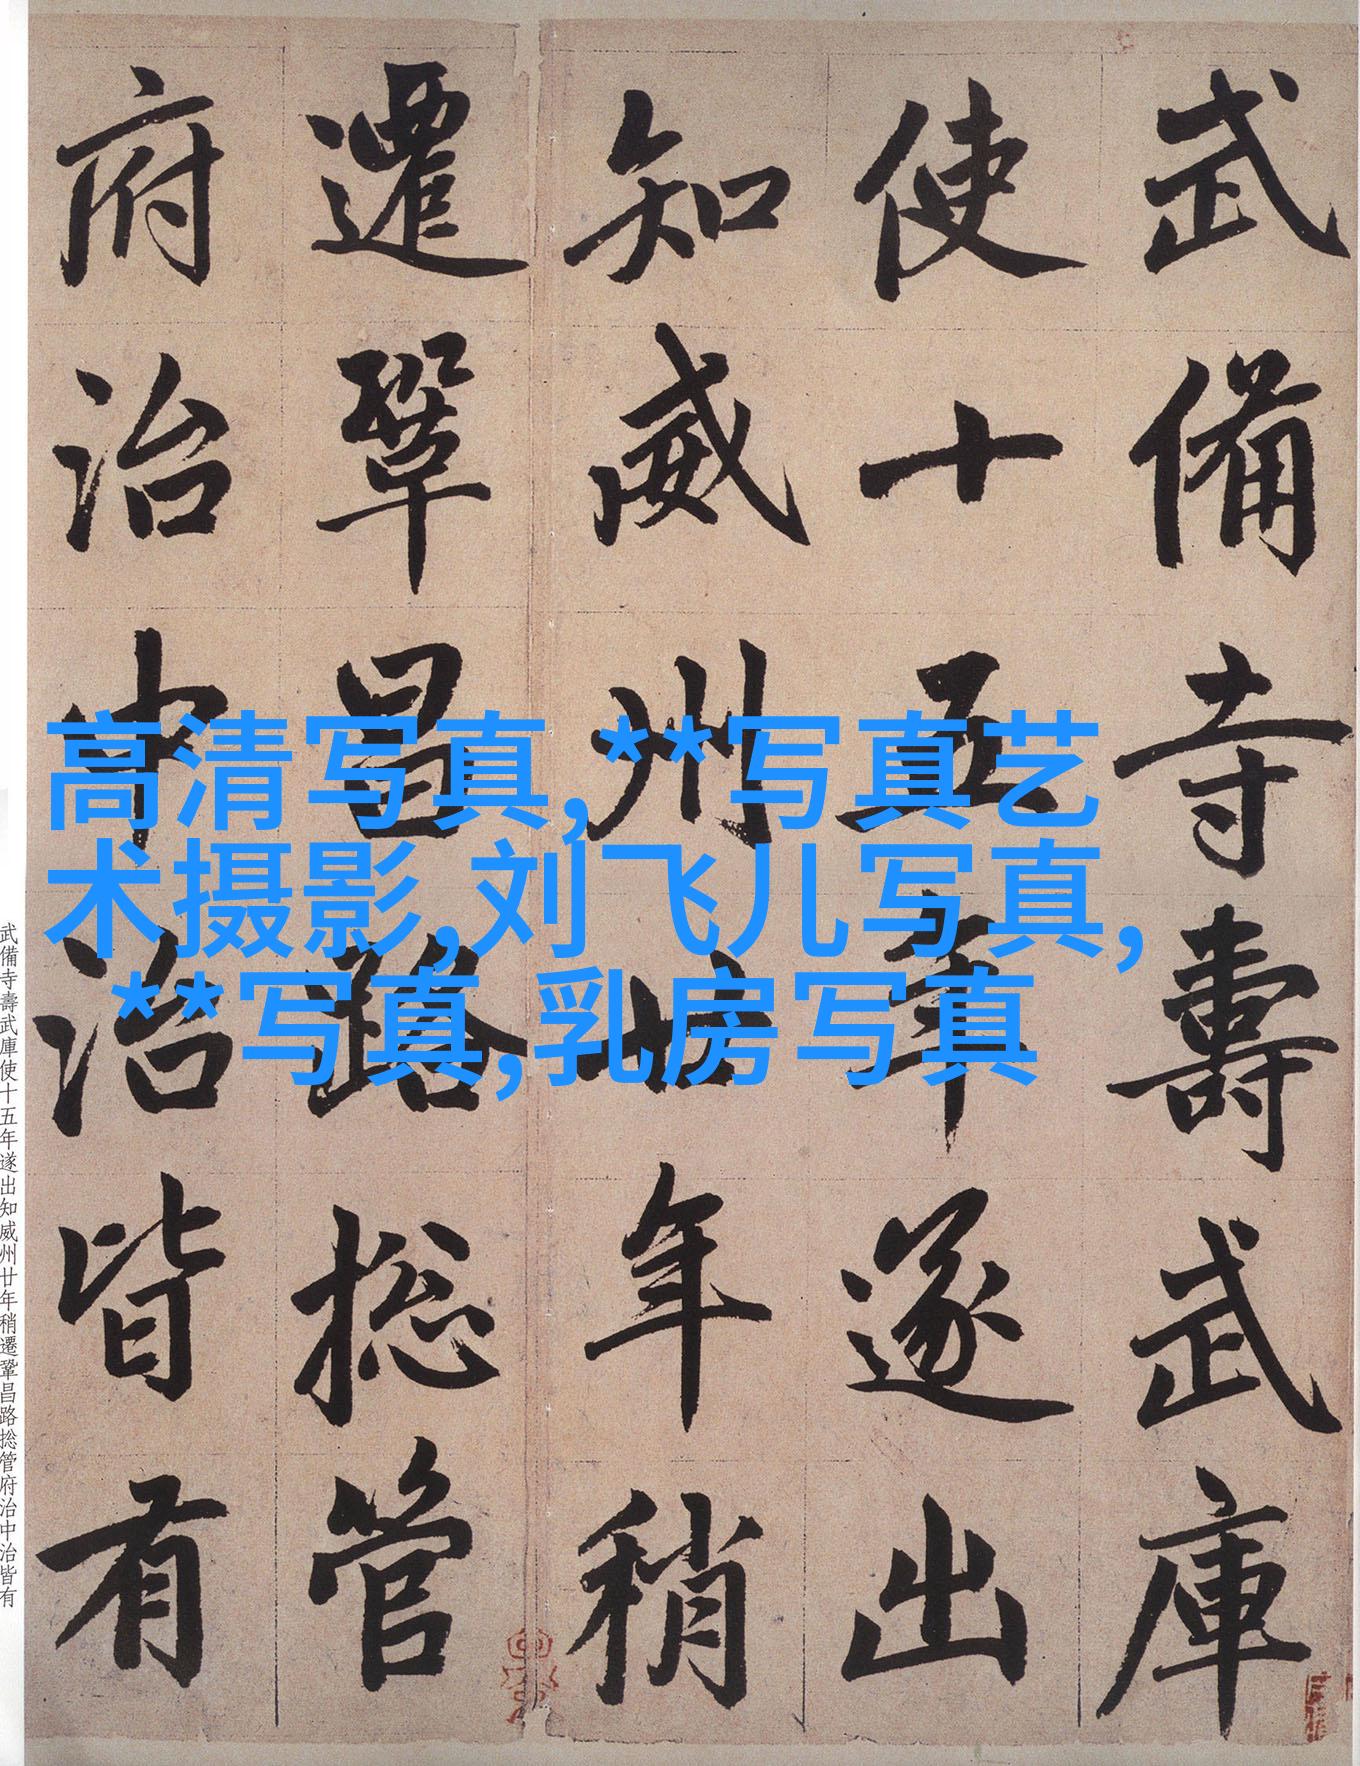 武備寺壽武庫
使十五年遂出
知威州廿年稍
遷鞏昌路捴管
府治中治皆有
高清写真,**写真艺
术摄影,刘飞儿写真,
**写真,乳房写真
武備寺壽武庫使十五年遂出知威州廿年稍遷鞏昌路捴管府治中治皆有